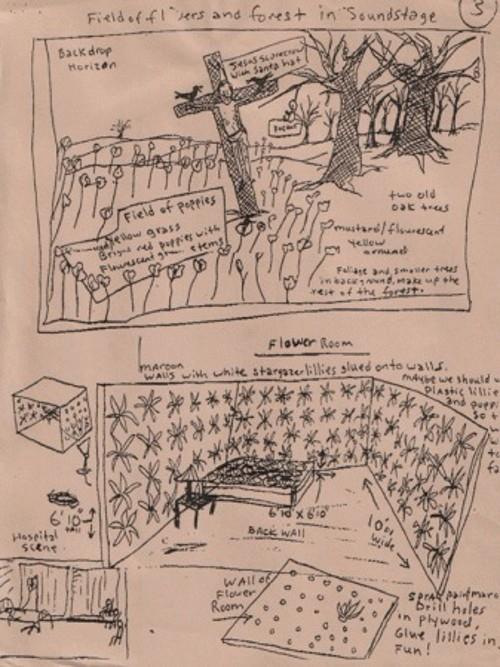 Field of fl ers and forest in Soundstage
3
Backdrop
Horizon
Jesus scarecrow
with santa hat
Field of poppies
yellow grass
Bright red poppies with
Flourescent green stems
two old
oak trees
mustard/flourescent
yellow
around
Foliage and smaller trees
in background, make up the
rest of the forest.
Flower Room
maroon
walls with white stargazer lillies glued onto walls.
maybe we should
Plastic lillie
and popp
so t
6'10"
tall
Hospital
scene
6'10 x 6'10"
BACK WALL
10'
wide
WALL of
Flower
Room
spray paint maro
Drill holes
in plywood,
Glue lillies in
Fun!